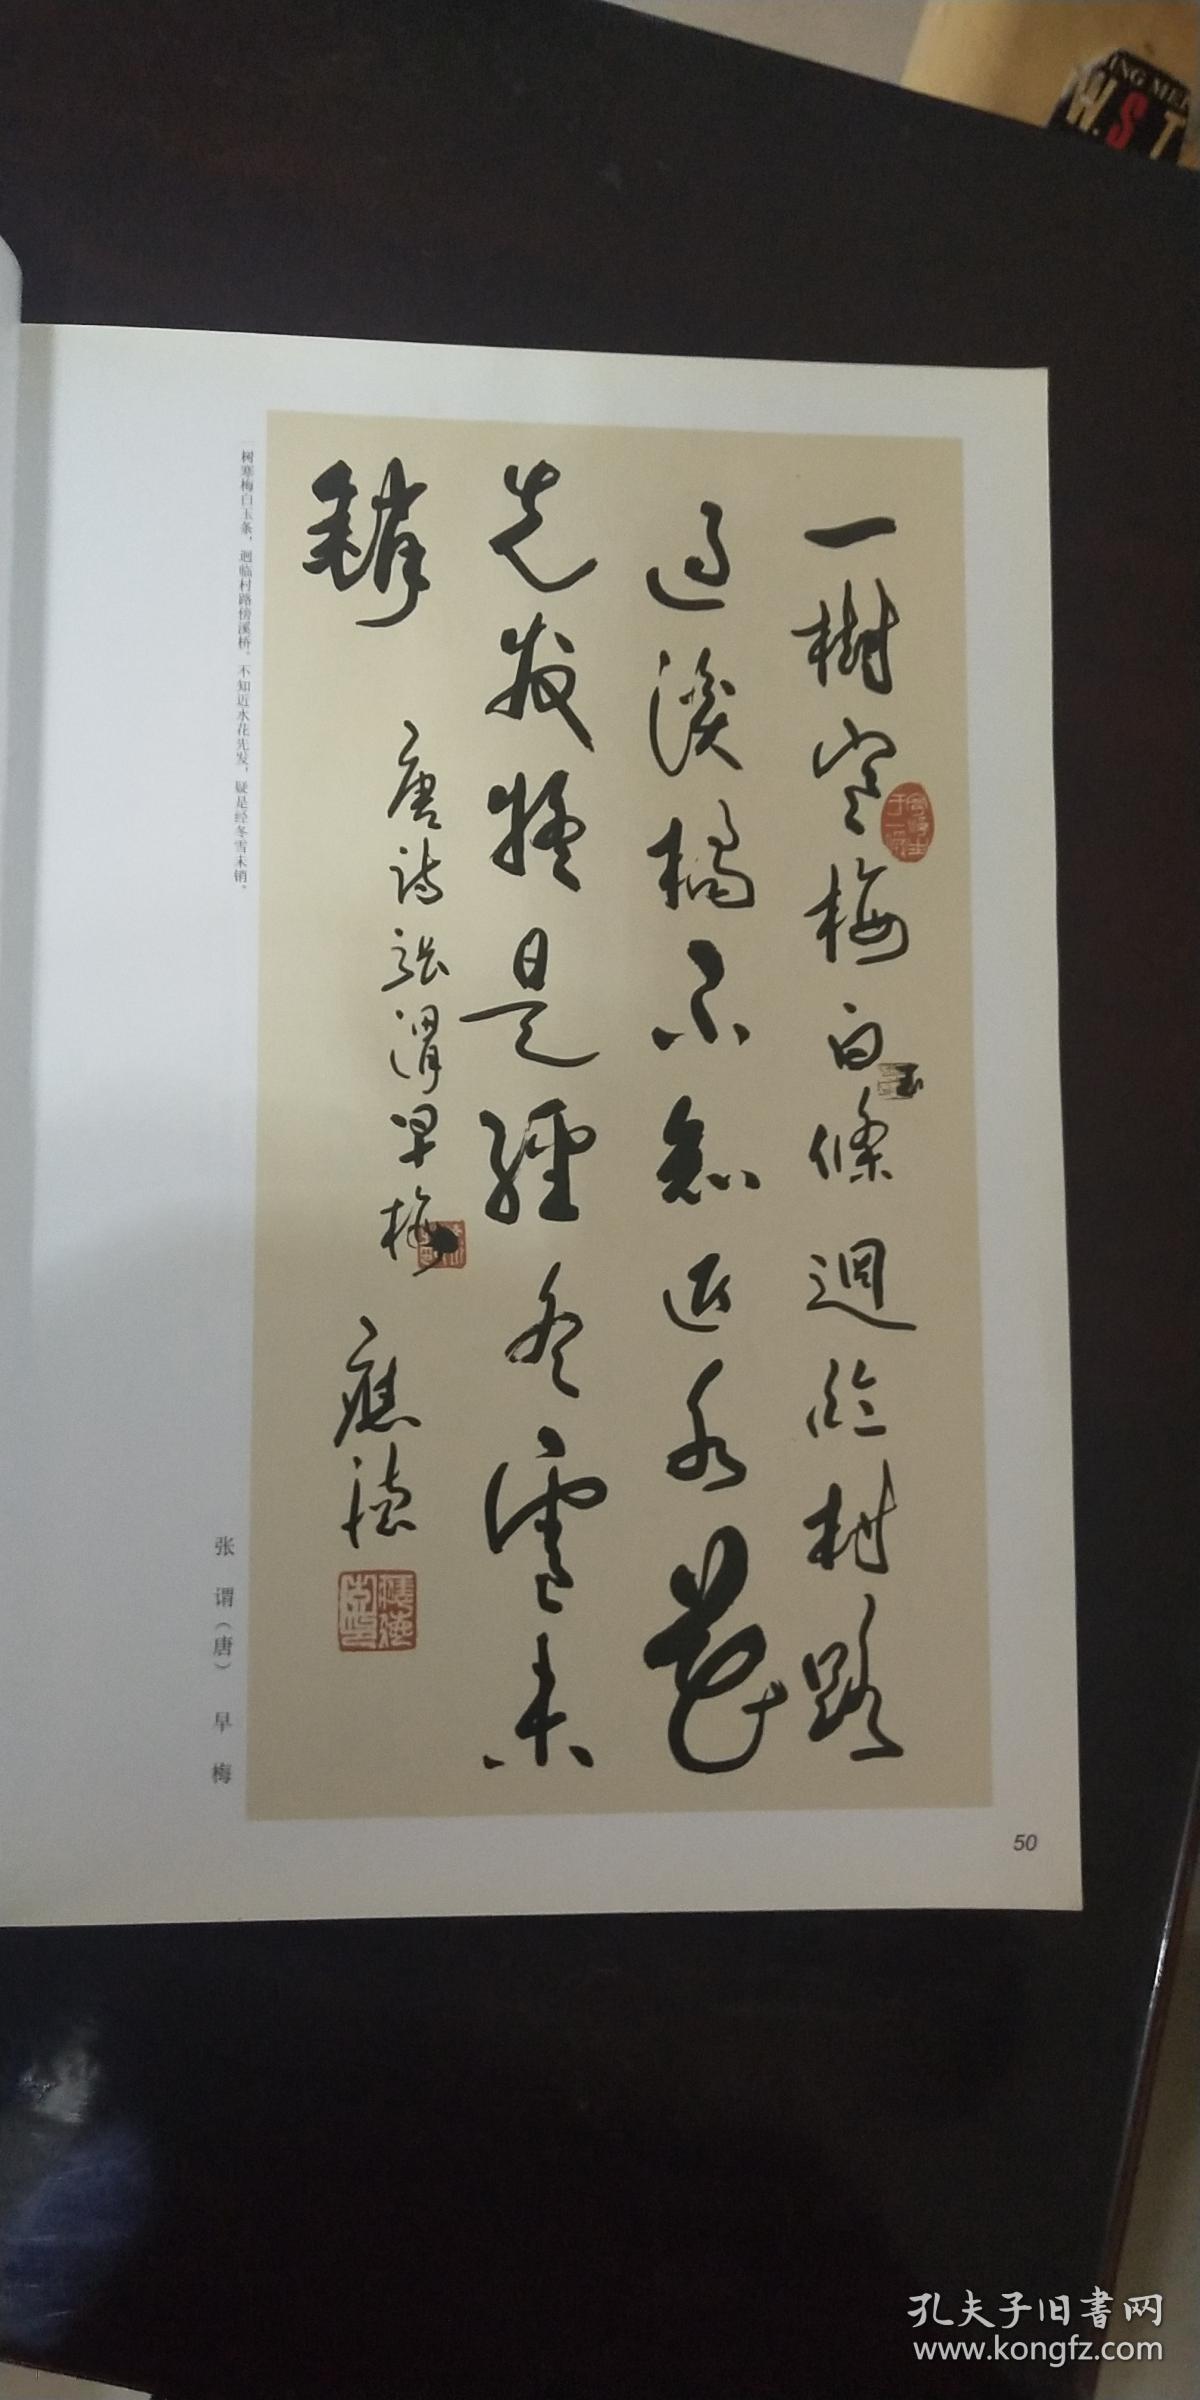 一樹寒梅白玉條迴臨村路
過溪橋不知近水花
先發疑是經冬雪未
銷
唐詩張謂早梅
一树寒梅白玉条，迥临村路傍溪桥。不知近水花先发，疑是经冬雪未销。
张 谓（唐） 早 梅
50
ING MEI
W.S.T
孔夫子旧书网
www.kongfz.com